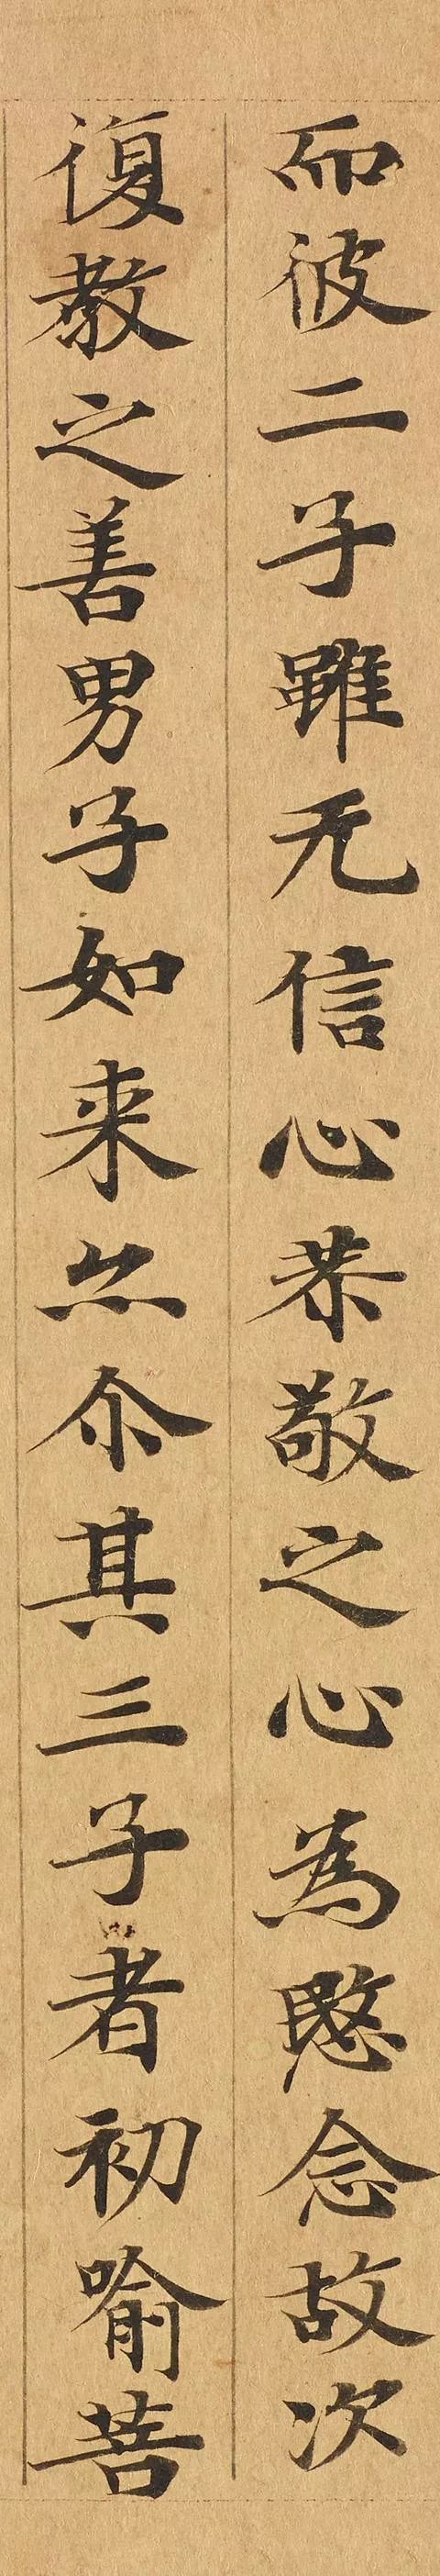 而彼二子雖无信心恭敬之心為愍念故次
復教之善男子如来尒尒其三子者初喻菩